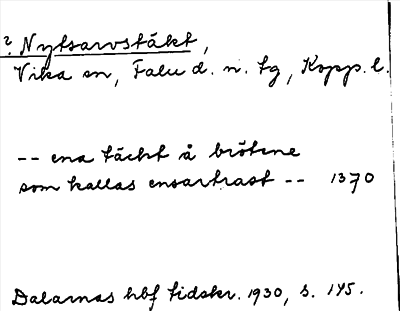 ? Nytsarvstäkt,
Vika sn, Falu d. n. tg, Kopp. l.
-- ena täckt å brötene
som kallas ensartrast -- 1370
Dalarnas hbf tidskr. 1930, s. 145.